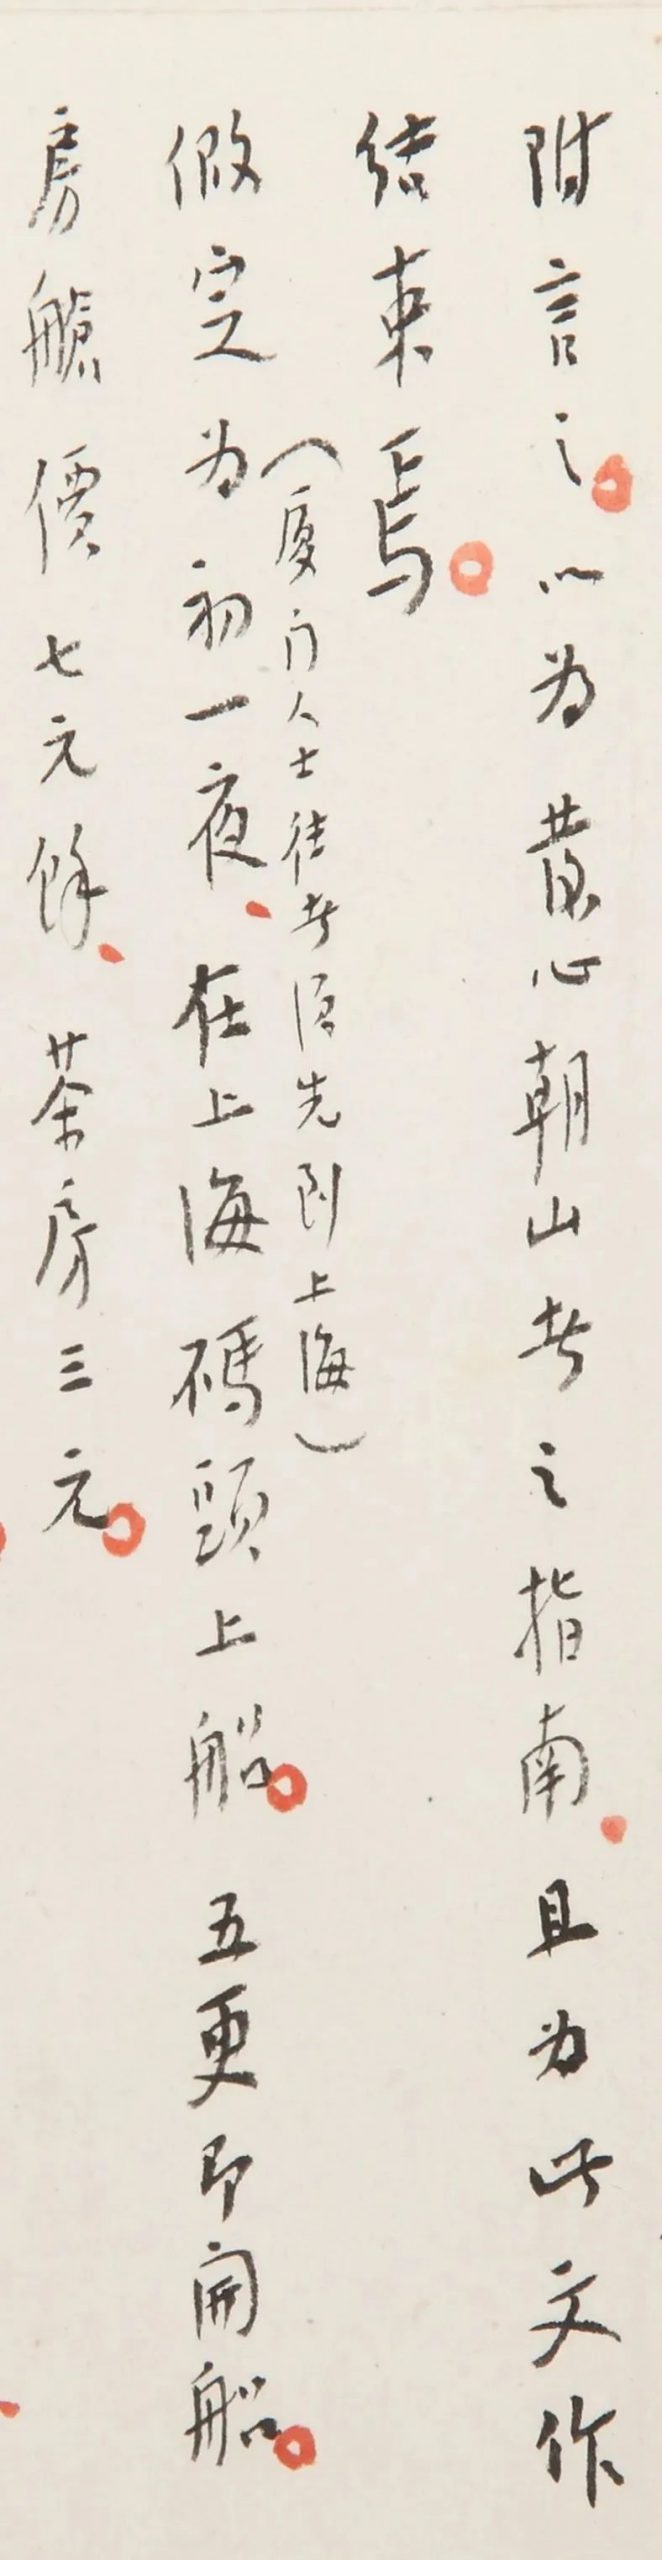 附言之。以为發心朝山者之指南、且为此文作
结束焉。
（厦门人士往者须先到上海）
假定为初一夜、在上海碼頭上船。五更即開船。
房艙價七元餘、茶房三元。